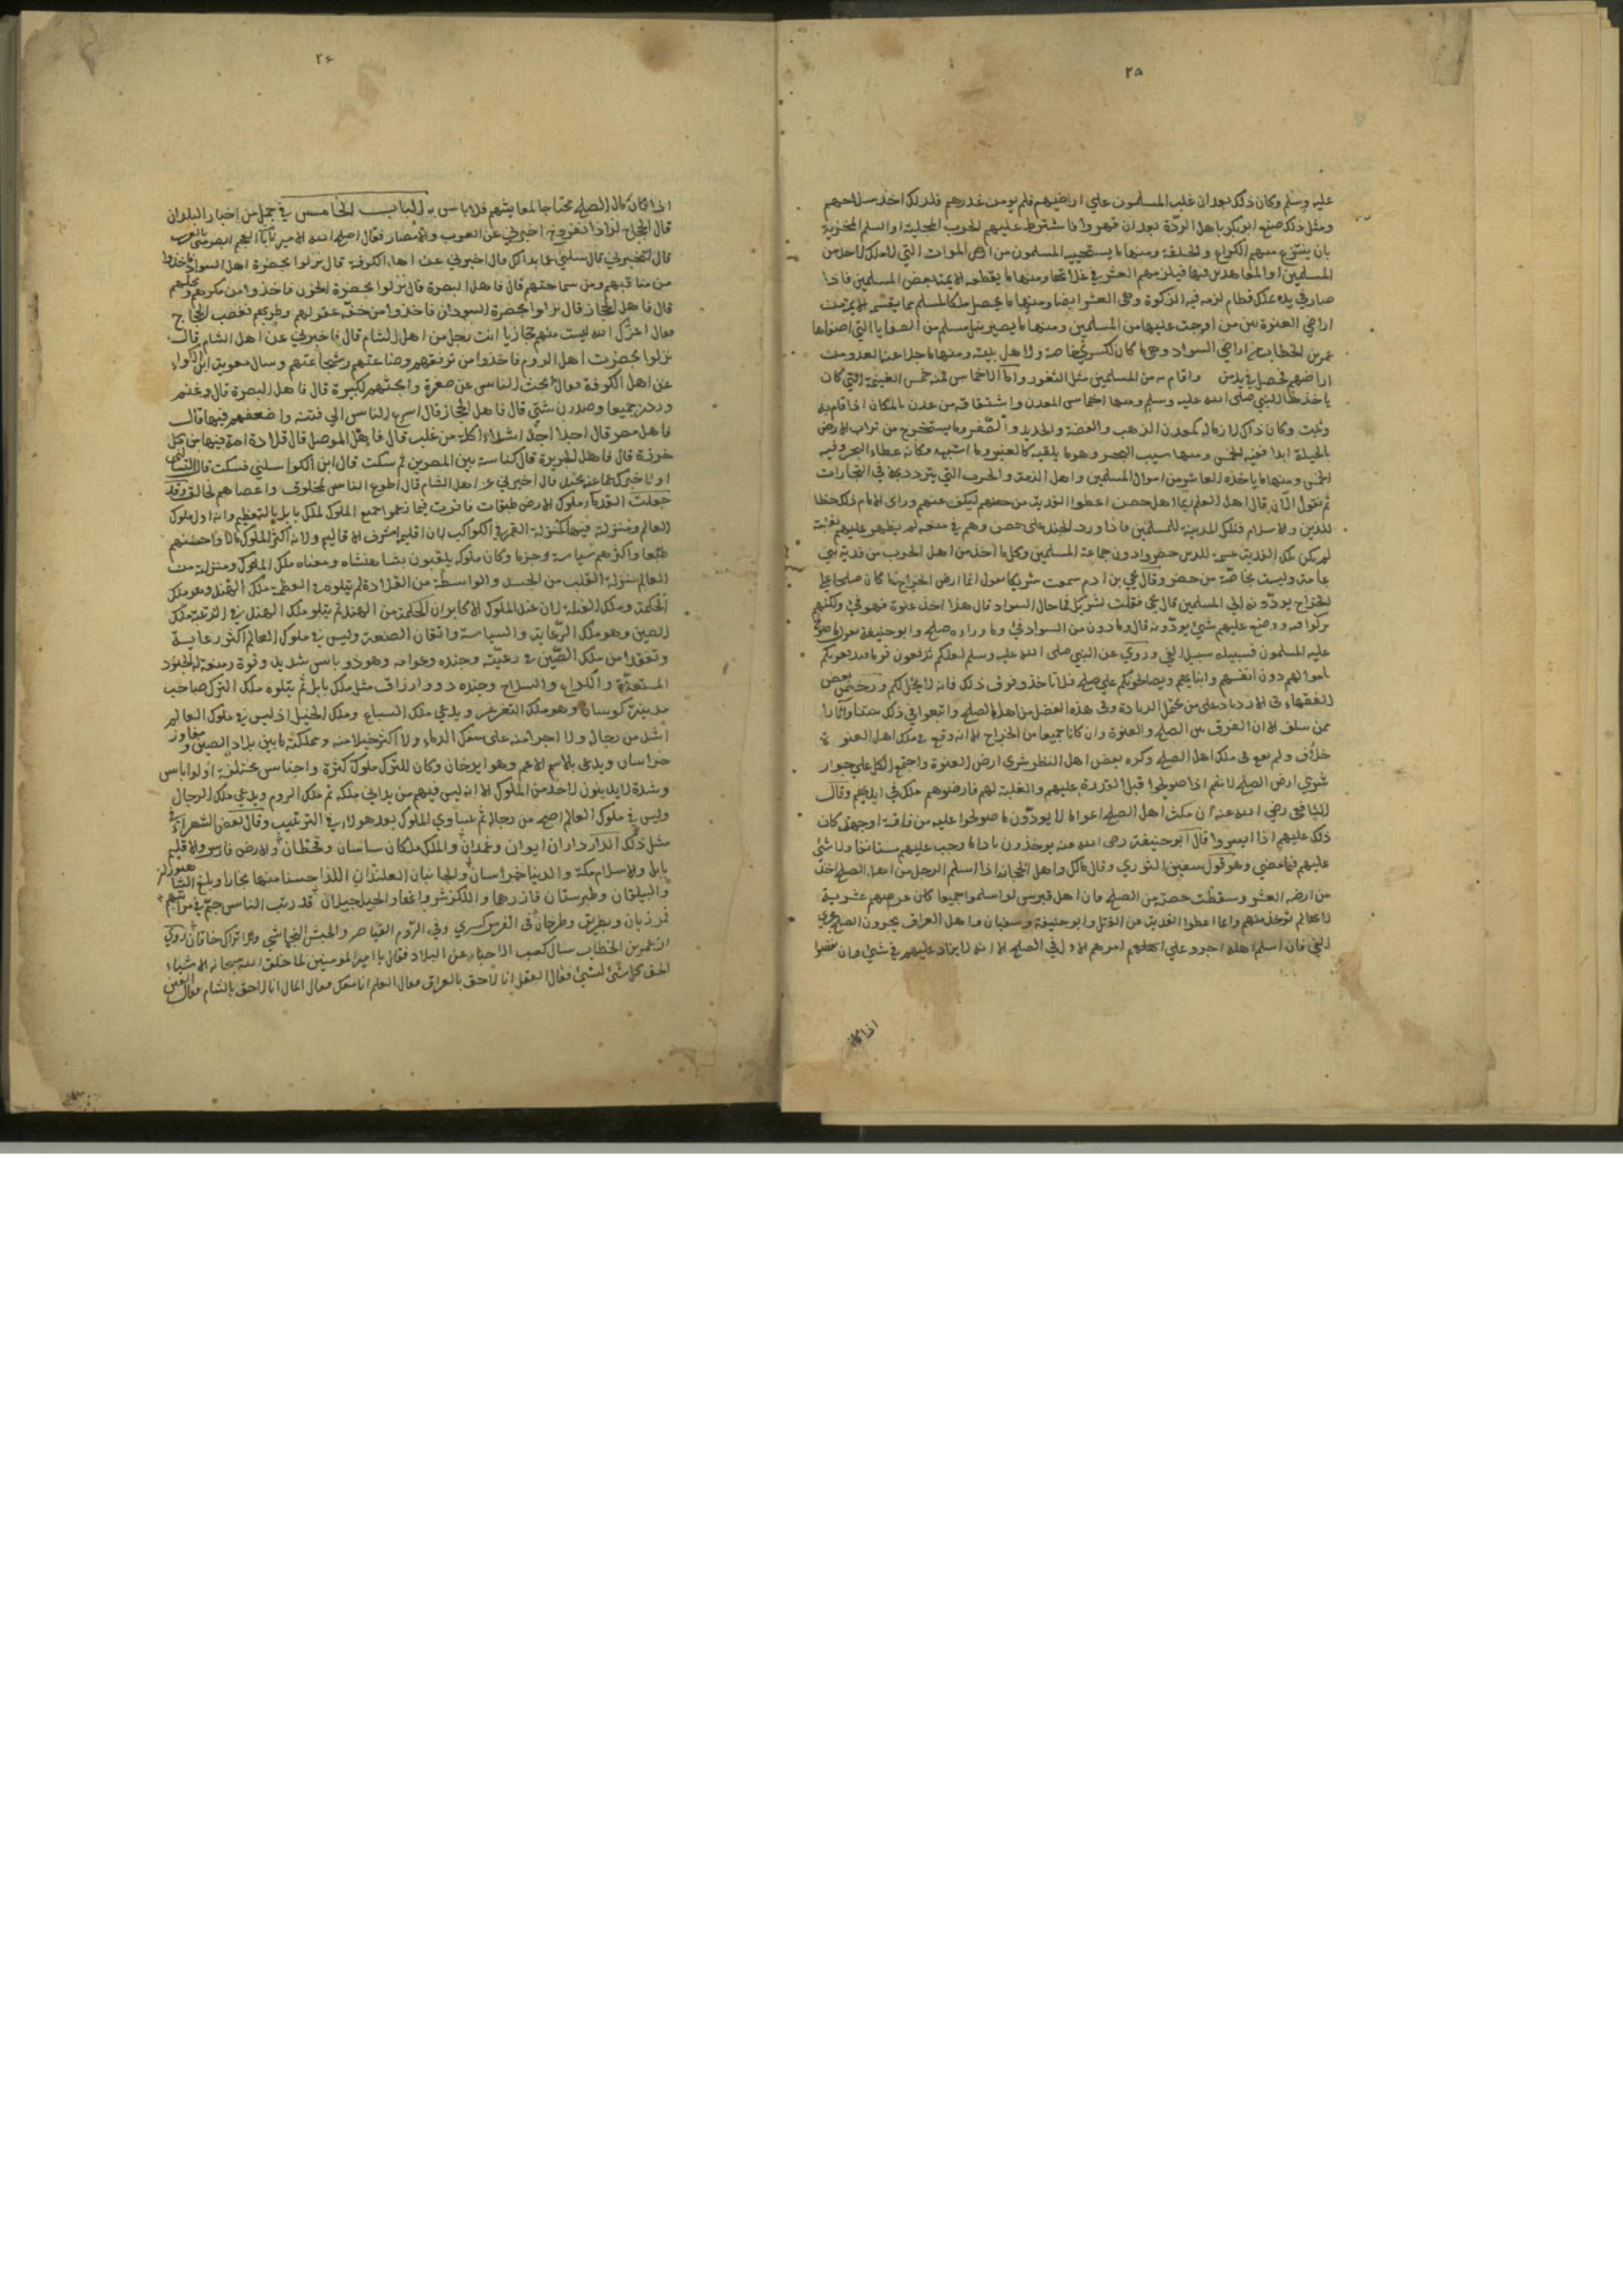 ٢٥
عليه وسلم وكان ذلك بعد ان غلب المسلمون علي اراضيهم فلم يومن غدرهم فلذلك اخذ سلاحهم
ومثل ذلك صنع ابو بكر باهل الردّة بعد ان قهروا فاشترط عليهم الحرب المجلية او السلم المخزية
بان ينتزع منهم الكراع والحلقة ومنها ما يستحييه المسلمون من ارض الموات التي لا ملك لاحد من
المسلمين او المعاهدين فيها فيلزمهم العشر في غلاتها ومنها ما يقطعه الايمة بعض المسلمين فاذا
صار في يده بذلك لزمه فيه الزكوة وهي العشر ايضا ومنها ما يحصل ملكا لمسلم مما يقسمه الايمة من
اراضي العنوة بين من اوجف عليها من المسلمين ومنها ما يصير بيد مسلم من الصفايا التي اصفاها
عمر بن الخطاب من اراضي السواد وهي ما كان لكسري خاصة ولاهل بيته ومنها ما جلا عنه العدو من
اراضيهم فحصل في يد من واقام به من المسلمين مثل الثغور واما الاخماس فمنه خمس الغنيمة التي كان
ياخذها النبي صلى الله عليه وسلم ومنها اخماس المعدن واشتقاقه من عدن بالمكان اذا اقام به
وثبت وكان ذلك لازما له كمعدن الذهب والفضة والحديد والصفر وما يستخرج من تراب الارض
بالحيلة ابدا ففيه الخمس ومنها سيب البحر وهو ما يلقيه كالعنبر وما اشبهه وكانه عطاء البحر وفيه
الخمس ومنها ما ياخذه العاشر من اموال المسلمين واهل الذمة والحرب التي يتردد بها في التجارات
ثم نقول الآن قال اهل العلم ايما اهل حصن اعطوا الفدية من حصنهم ليكف عنهم وراى الامام ذلك حظا
للدين والاسلام فتلك المدينة للمسلمين فاذا ورد الجند على حصن وهم في منعة لم يظهر عليهم بغلبة
لم يكن تلك الفدية غنيمة للذين حضروا دون جماعة المسلمين وكل ما اخذ من اهل الحرب من فدية فهي
عامة وليست بخاصة من حضر وقال يحي بن ادم سمعت شريكا يقول انما ارض الخراج ما كان صلحا على
الخراج يودّونه الي المسلمين قال يحي فقلت لشريك فما حال السواد قال هذا اخذ عنوة فهو فيء ولكنهم
تركوا فيه ووضع عليهم شيء يودّونه قال وما دون من السواد فيء وما وراءه صلح وابو حنيفة يقول ما صولح
عليه المسلمون فسبيله سبيل الفيء وروي عن النبي صلى الله عليه وسلم لعلكم تدفعون قوما فيدفعونكم
باموالهم دون انفسهم وابنايهم ويصالحونكم علي صلح فلا تاخذوا فوق ذلك فانه لا يحل لكم ورخص بعض
الفقهاء في الازدياد على من يحتمل الزيادة وفي هذه الفضل من اهل الصلح واتبعوا في ذلك سننا واثارا
ممن سلف الا ان الفرق بين الصلح والعنوة وان كانا جميعا من الخراج الا انه وقع في ملك اهل العنوة
خلاف ولم يقع في ملك اهل الصلح وكره بعض اهل النظر شري ارض العنوة واجتمع الكل علي جواز
شري ارض الصلح لانهم اذا صولحوا قبل القدرة عليهم والغلبة لهم فارضوهم ملك في ايديهم وقال
الشافعي رضي الله عنه ان مكث اهل الصلح اعواما لا يودّون ما صولحوا عليه من فاقة او جهد كان
ذلك عليهم اذا ايسروا قال ابو حنيفة رضي الله عنه يوخذون باداء ما وجب عليهم مستانفا ولا شئ
عليهم فيما مضي وهو قول سفين الثوري وقال مالك واهل الحجاز اذا اسلم الرجل من اهل الصلح اخذ
من ارضه العشر وسقطت حصته من الصلح فان اهل قبرس لو اسلموا جميعا كان عرصهم عشرية
لانها لم توخذ منهم وانما اعطوا الفدية عن القتل وابو حنيفة وسفيان واهل العراق يجرون الصلح مجري
الفيء فان اسلم اهله اجروا علي امرهم الاول في الصلح الا انه لا يزاد عليهم في شيء وان نقصوا
اذا كان
٢٦
اذا كان مال الصلح محتاجا لمعايشهم فلا باس به الباب الخامس في جمل من اخبار البلدان
قال الحجاج لزاذانفروخ اخبرني عن العرب والامصار فقال اصلح الله الامير انا بالعجم ابصر مني بالعرب
قال لتخبرني قال سلني عما بدا لك قال اخبرني عن اهل الكوفة قال نزلوا بحضرة اهل السواد فاخذوا
من مناقبهم ومن سماحتهم قال فاهل البصرة قال نزلوا بحضرة الخوز فاخذوا من مكرهم وبخلهم
قال فاهل الحجاز قال نزلوا بحضرة السودان فاخذوا من خفة عقولهم وطربهم فغضب الحجاج
فقال اعزك الله لست منهم حجازيا انت رجل من اهل الشام قال فاخبرني عن اهل الشام قال
نزلوا بحضرت اهل الروم فاخذوا من ترفقهم وصناعتهم وشجاعتهم وسال معوية ابن الكواء
عن اهل الكوفة فقال ابحث الناس عن صغيرة واجبنهم لكبيرة قال فاهل البصرة قال غنم
وردن جميعا وصدرن شتي قال فاهل الحجاز قال اسرع الناس الي فتنة واضعفهم فيها قال
فاهل مصر قال اجدا اشداء اكلة من غلب قال فاهل الموصل قال قلادة امة فيها من كل
خرزة قال فاهل الجزيرة قال كناسة بين المصرين ثم سكت قال ابن الكوا سلني فسكت قال لتسالني
او لاخبرك عما عنه تحيد قال اخبرني عن اهل الشام قال اطوع الناس لمخلوق واعصاهم لخالق وقد
جعلت القدماء ملوك الارض طبقات فاقرت فيما زعموا جميع الملوك لملك بابل بالتعظيم وانه اول ملوك
العالم ومنزلته فيها كمنزلة القمر في الكواكب لان اقليمه اشرف الاقاليم ولانه اكثر الملوك مالا واحسنهم
طبعا واكثرهم سياسة وحزما وكان ملوكه يلقبون بشاهنشاه ومعناه ملك الملوك ومنزلته من
العالم بمنزلة القلب من الجسد والواسطة من القلادة ثم يتلوه في العظمة ملك الهند وهو ملك
الحكمة وملك الفيلة لان عند الملوك الاكابر ان الحكمة من الهند ثم يتلو ملك الهند في الرتبة ملك
الصين وهو ملك الرعاية والسياسة واتقان الصنعة وليس في ملوك العالم اكثر رعاية
وتفقدا من ملك الصّين في رعيّته وجنده وعوامه وهو ذو باس شديد وقوة ومنعة له الجنود
المستعدّة والكراع والسلاح وجنده ذوو ارزاق مثل ملك بابل ثم يتلوه ملك الترك صاحب
مدينة كوسان وهو ملك التغزغز ويدعي ملك السباع وملك الخيل اذ ليس في ملوك العالم
اشد من رجاله ولا اجرا منه على سفك الدماء ولا اكثر خيلا منه ومملكته ما بين بلاد الصين ومفاوز
خراسان ويدعى بالاسم الاعم وهو ايرخان وكان للترك ملوك كثيرة واجناس مختلفة اولوا باس
وشدة لا يدينون لاحد من الملوك الا انه ليس فيهم من يداني ملكه ثم ملك الروم ويدعي ملك الرجال
وليس في ملوك العالم اصبح من رجاله ثم تتساوي الملوك بعد هولاء في الترتيب وقال بعض الشعراء في
مثل ذلك الدار داران ايوان وغمدان والملك ملكان ساسان وقحطان والارض فارس والاقليم
بابل والاسلام مكة والدنيا خراسان والجانبان العلندان اللذا حسنا منها بخارا وبلخ الشاه
والبيلقان وطبرستان فازرهما واللكز شروانها والجيل جيلان قد رتب الناس جم في مراتبهم
فمرزبان وبطريق وطرخان في الفرس كسري وفي الروم القياصر والحبش النجاشي والاتراك خاقان وروي
ان عمر بن الخطاب سال كعب الاحبار عن البلاد فقال يا امير المومنين لما خلق الله سبحانه الاشياء
الحق كل شئ لشئ فقال العقل انا لاحق بالعراق فقال العلم انا معك فقال المال انا لاحق بالشام فقال الفتن